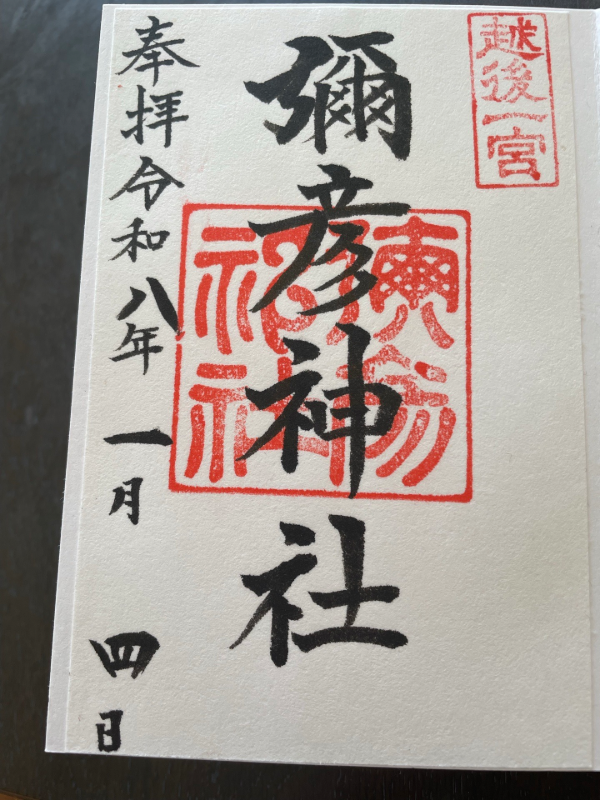 越後一宮
彌彦神社
奉拝令和八年一月四日